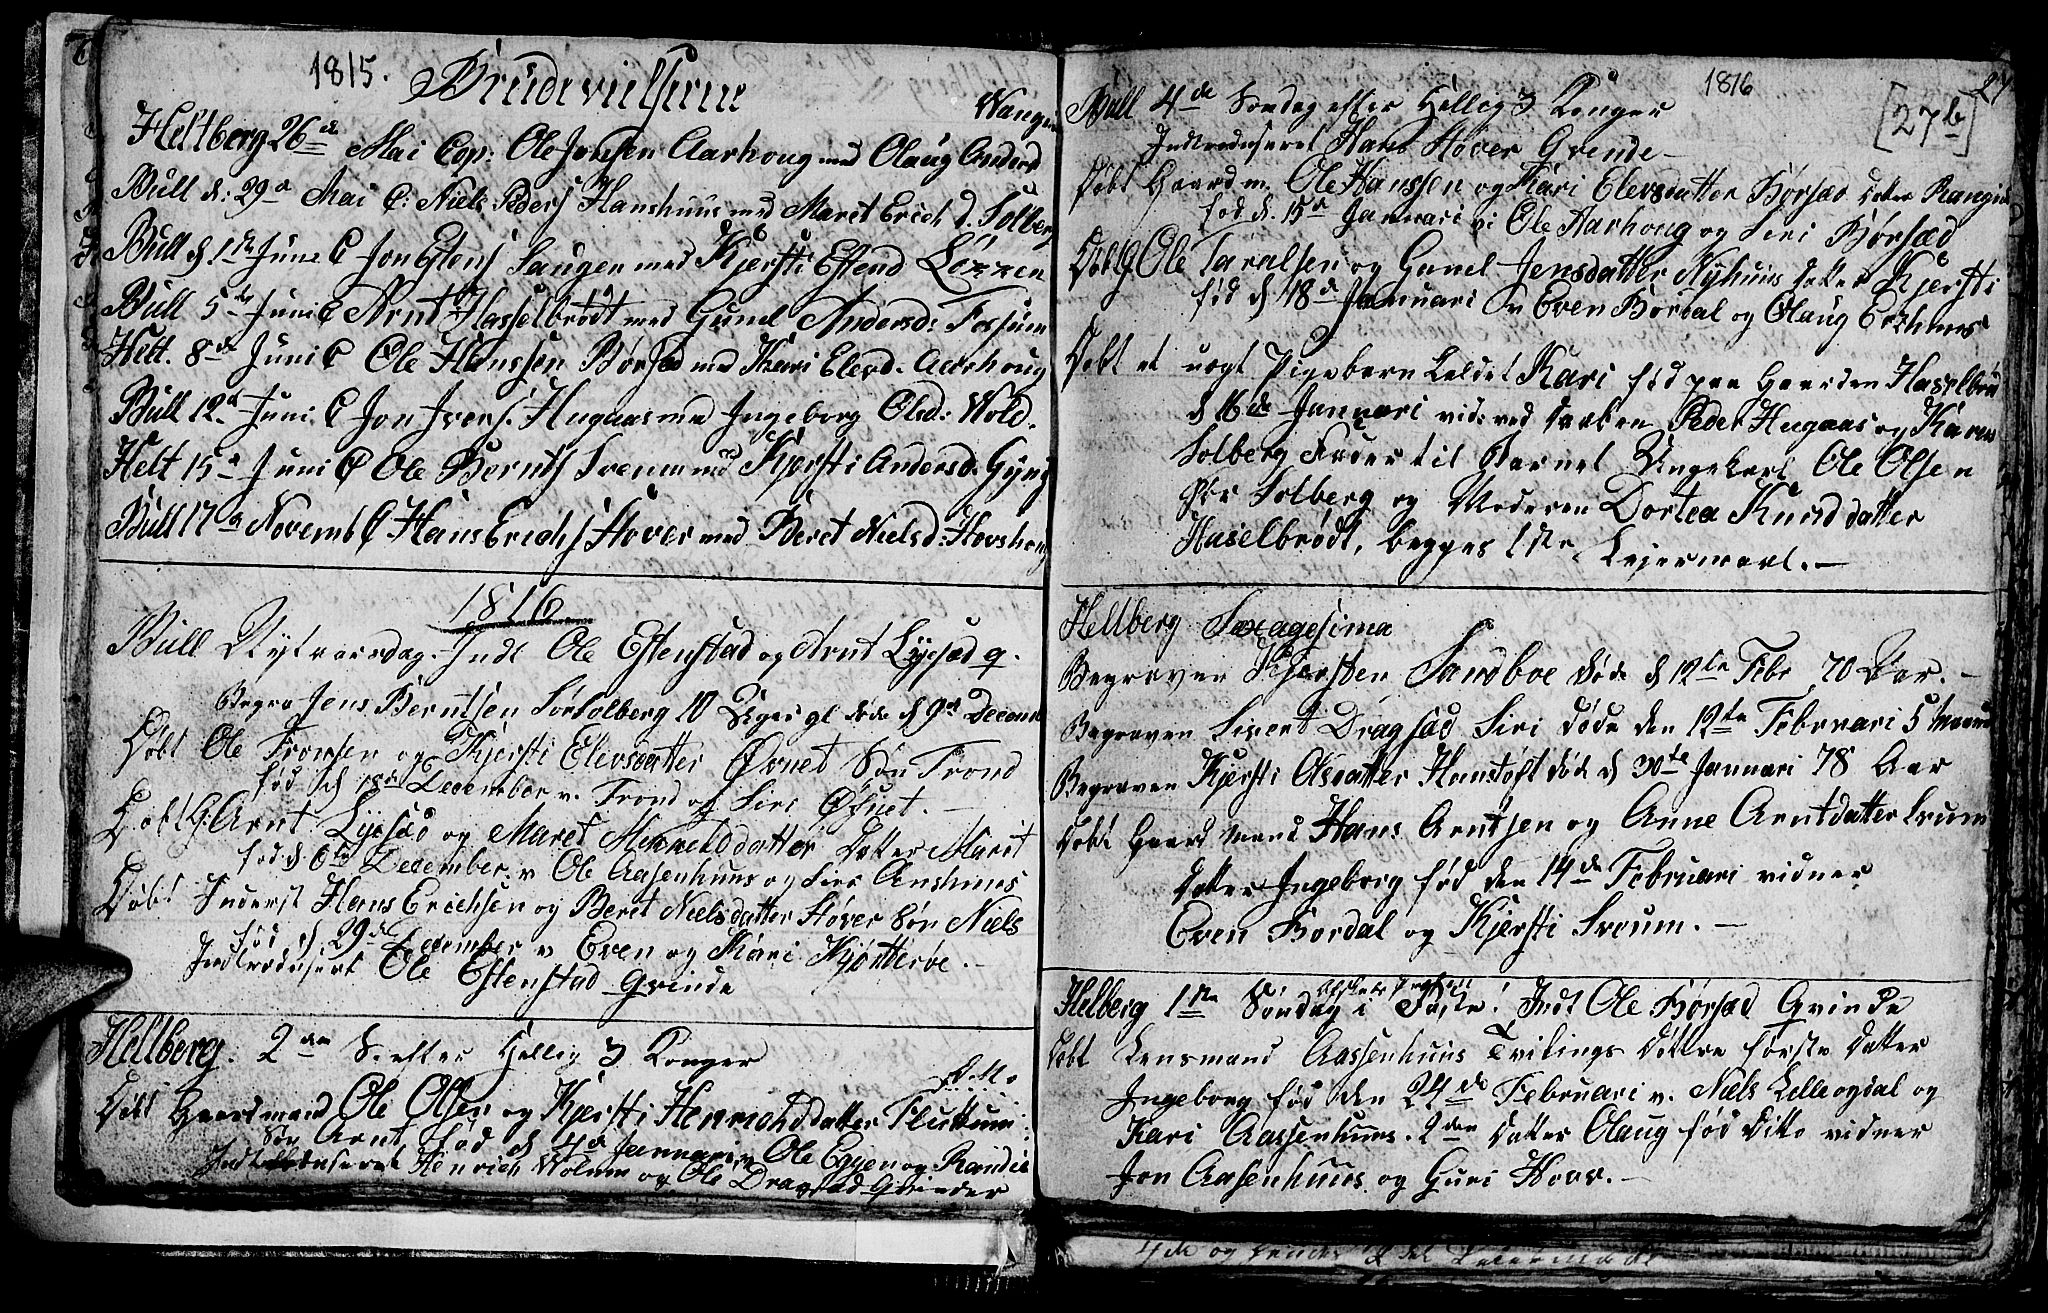 1815. Brudevielserne
Heltberg 26de Mai Cop: Ole Jensen Aarhoug med Olaug Andersd Wangen
Bull d: 29d Mai C: Niels Peders Hanshuus med Marit Erich d. Solberg
Bull d 1ste June C Jon Estens Haugen med Kjersti Estend
Bull 5te Juni C Arnt Hasselbrødt med Gunel Andersd: Fossum
Helt. 8de Juni C Ole Hanssen Børsæd med Kari Elevd. Aarhoug
Bull 12d Juni C Jon Ivers. Hugaas med Ingeborg Olsd: Wold.
Helt 15d Juni C Ole Bernts Svenn med Kjersti Andersd.
Bull 17d Novemb C Hans Erichs Høver med Beret Nielsd: Hovshoug
1816
Bull Nytaarsdag. Indt Ole Estenstad og Arnt Lyesæd q.
Begra Jens Berntsen Sørsolberg 10 Uger gl døde d 9de Decemb
Døbt Ole Tronsen og Kjersti Elevsdatter Øvnet Søn Trond
fød d 18de December v. Trond og Siri Øfnet.
Døbt G. Arnt Lyesæd og Maret datter Datter Marit
fød d. 6te December v Ole Aasenhuus og Siri Anshuus
Døbt Inderst Hans Erichsen og Beret Nielsdatter Høver Søn Niels
fød d 29de December v Even og Kari Kjøtterøe.
Introduseret Ole Estenstad Qvinde
Heltberg. 2den S. efter Hellig 3 Konger
F. M.
Døbt Gaardmand Ole Olsen og Kjersti Henrichsdatter Fluttum
Søn Arnt, fød d 4de Januari v Ole Eggen og Randi
Introduseret Henrich Wolum og Ole Dragsæd Qvinder
1816
27
[27b]
Bull 4de Søndag efter Hellig 3 Konger
Introduseret Hans Høver Qvinde
Døbt Gaardm. Ole Hanssen og Kari Elevsdatter Børsæd Datter
fød d. 15d Januari v: Ole Aarhoug og Siri Børsæd
Døbt G Ole Taralsen og Gunel Jensdatter Nyhuus Datter Kjersti
fød d 18de Januari v Even Bordal og Olaug
Døbt et uægt Pigebarn kaldet Kari fød paa Gaarden Hasselbrø
d 16de Januari vid: ved Daaben Peder Hugaas og Karen
Solberg Fader til Barnet Ungekarl Ole Olsen
Solberg og Moderen Dortea Knudsdatter
Haselbrødt, begges 1ste Lejermaal.
Heltberg Sexagesima
Begraven Kjersten Sandboe døde d 12te Febr 70 Aar.
Begraven Sivert Dragsæd Siri døde den 12te Februari 5 Maaned
Begraven Kjersti Olsdatter Hanstoft døde d 30te Januari 78 Aar
Døbt Gaardmand Hans Arntsen og Anne Arntdatter Srum
Datter Ingeborg fød den 14de Februari vidner
Even Bordal og Kjersti Sroum.
Helberg 1ste Søndag i Faste. Indt Ole Børsæd Qvinde
Døbt Lensmand Aassenhuus Tvilings Døttre første Datter
Ingeborg fød den 24de Februari v. Niels Lilleogdal og
Kari Aassenhuus. 2den Datter Olaug fød Dito vidner
Jon Aasenhuus og Guri Hovr.